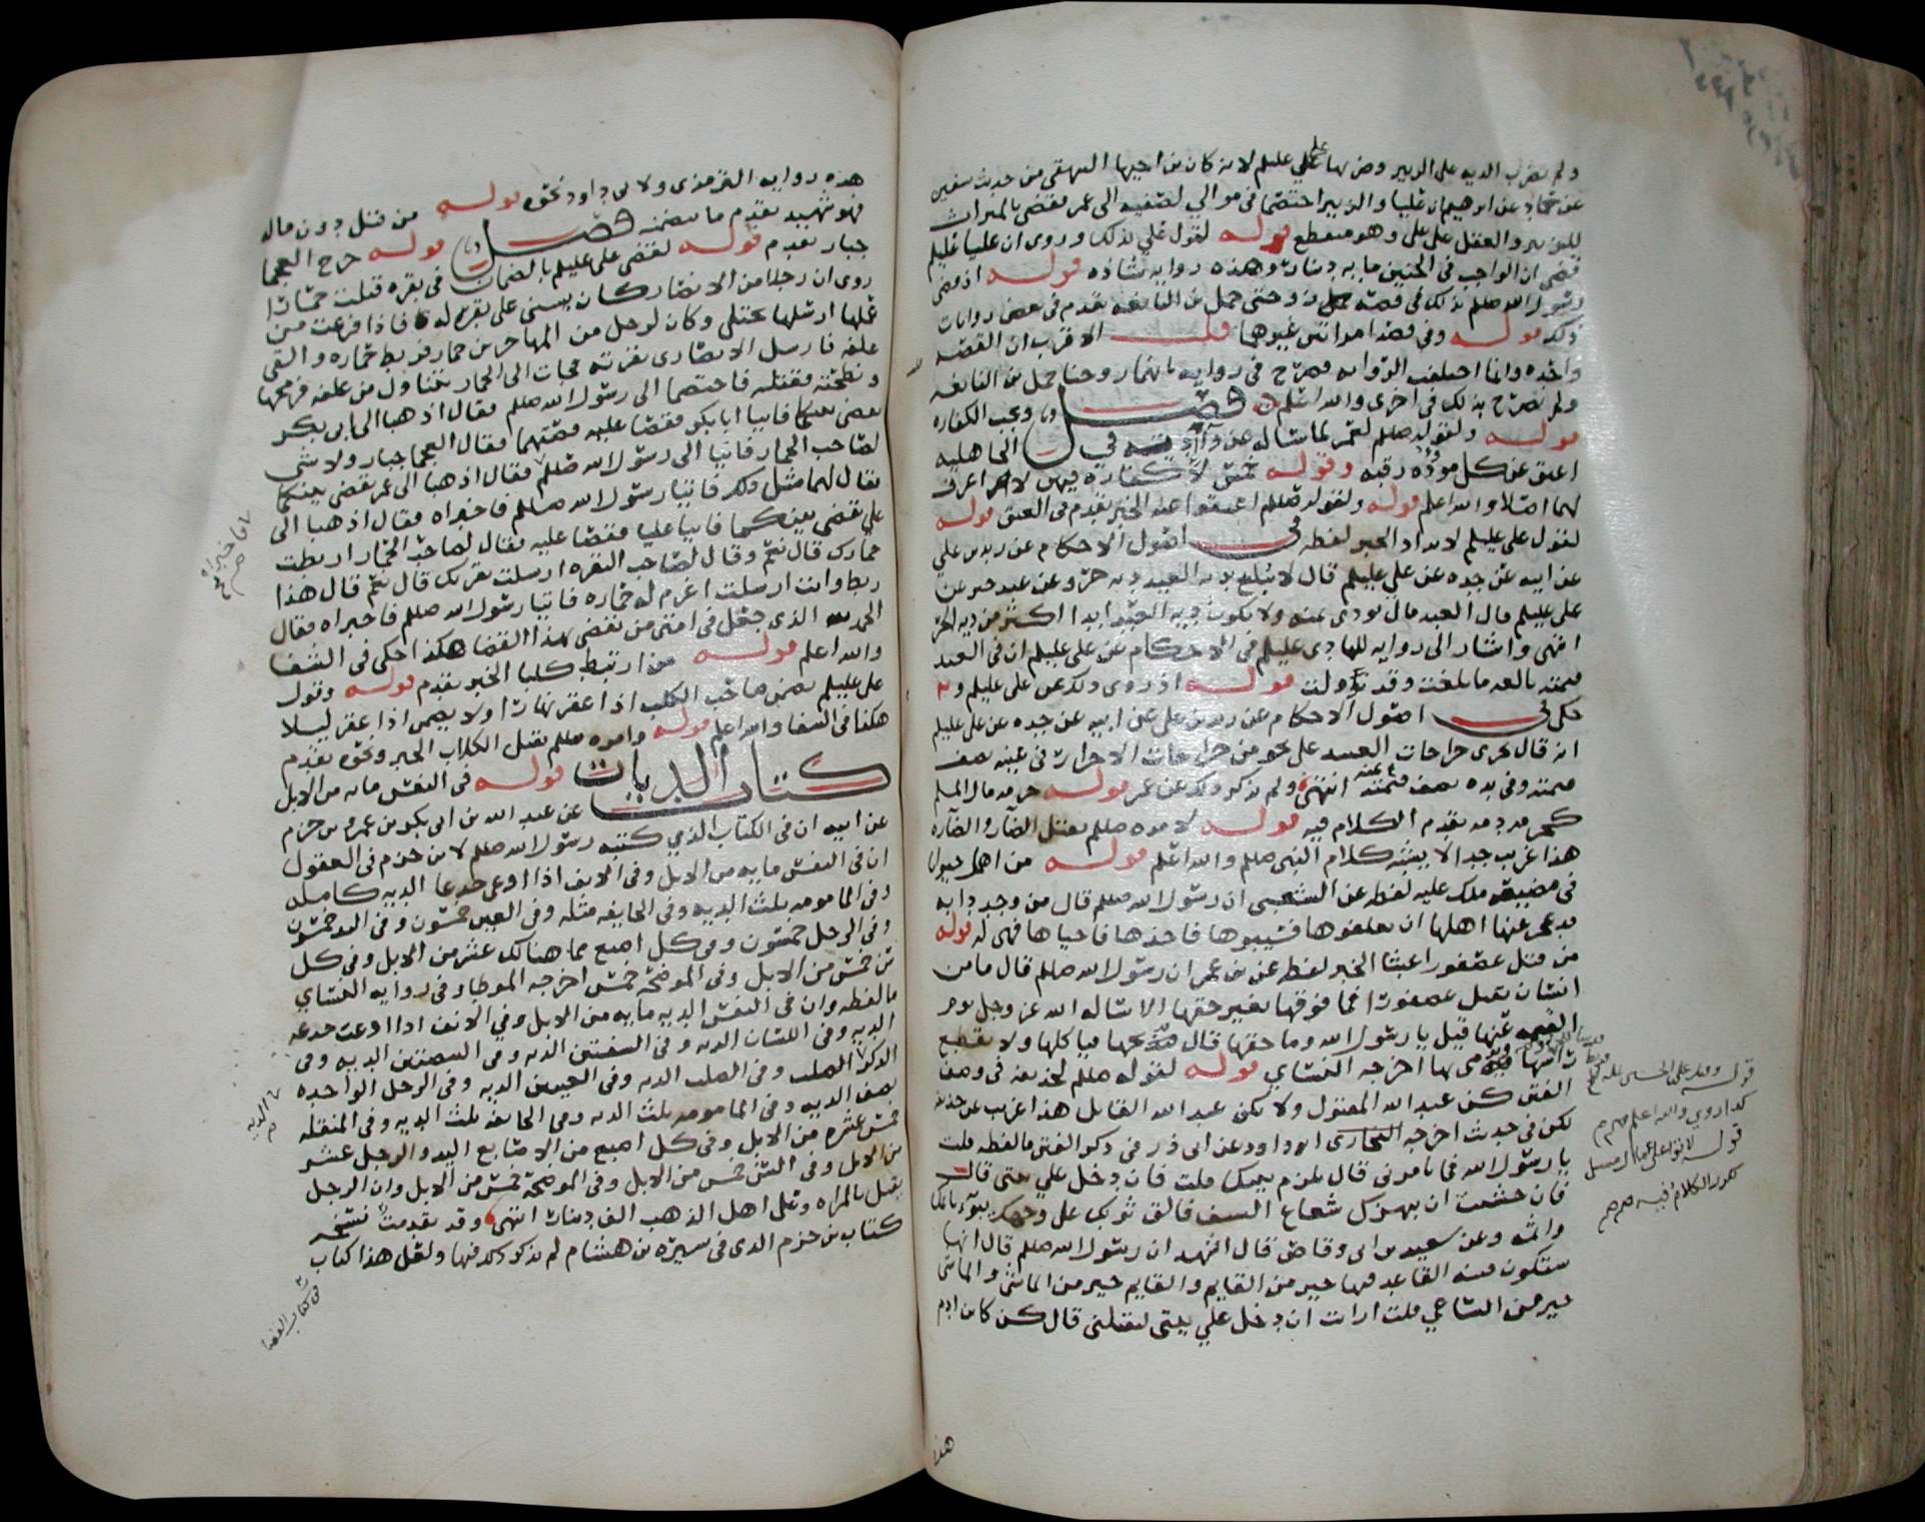 ولم يضرب الديه على الزبير وضربها على علي عليلم لانه كان بن اخيها البيهقي من حديث سفين
عن حماد عن ابرهيم ان عليا والزبير اختصما في موالي لصفيه الى عمر فقضى بالميراث
للزبير والعقل على علي وهو منقطع قوله لقول علي بذلك وروى ان عليا عليلم
قضى ان الواجب في الجنين مايه دينار وهذه روايه شاذه قوله اذ قضى
رسول الله صللم بذلك في قصة زوجتي حمل بن النابغه تقدم في بعض روايات
ذلك قوله وفي قصة امراتين غيرهما قلت الاقرب ان القصه
واحده وانما اختلفت الروايه فصرح في روايه بانهما زوجتا حمل بن النابغه
ولم يصرح بذلك في اخرى والله اعلم فصل ويجب الكفاره
قوله ولقوله صللم لعمر لما ساله عن وأد في الجاهليه
اعتق عن كل موؤده رقبه وقوله خمس لا كفاره فيهن لا اعرف
لهما اصلا والله اعلم قوله ولقوله صللم اعتقوا عنه الخبر تقدم في العتق قوله
لقول علي عليلم لا يزداد الخبر لفظه في اصول الاحكام عن زيد بن علي
عن ابيه عن جده عن علي عليلم قال لا تبلغ بديه العبد ديه حر وعن عبد خير عن
علي عليلم قال العبد مال يودى ثمنه ولا يكون ديه العبد ابدا اكثر من ديه الحر
انتهى واشار الى روايه للهادي عليلم في الاحكام عن علي عليلم ان في العبد
قيمته بالغه ما بلغت وقد تؤولت قوله اذ روي ذلك عن علي عليلم و
حكى في اصول الاحكام عن زيد بن علي عن ابيه عن جده عن علي عليلم
انه قال تجري جراحات العبيد على نحو من جراحات الاحرار في عينه نصف
قيمته وفي يده نصف قيمته انتهى ولم يذكر ذلك عن عمر قوله حرمه مال المسلم
كحرمه دمه تقدم الكلام فيه قوله لامره صللم بقتل الضار والضاره
هذا غريب جدا لا يشبه كلام النبي صللم والله اعلم قوله من احيا حيوان
في مضيعه ملك عليه لفظه عن الشعبي ان رسول الله صللم قال من وجد دابه
قد عجز عنها اهلها ان يعلفوها فسيبوها فاخذها فاحياها فهي له قوله
من قتل عصفورا عبثا الخبر لفظه عن بن عمر ان رسول الله صللم قال ما من
انسان يقتل عصفورا فما فوقها بغير حقها الا ساله الله عز وجل يوم
القيمه عنها قيل يا رسول الله وما حقها قال يذبحها فياكلها ولا يقطع
راسها ويرمي بها اخرجه النسائي قوله لقوله صللم لحذيفه في وصف
الفتن كن عبد الله المقتول ولا تكن عبد الله القاتل هذا غريب عن حذيفه
لكن في حديث اخرجه ابو داود عن ابي ذر في ذكر الفتن ما لفظه قلت
يا رسول الله فما تامرني قال تلزم بيتك قلت فان دخل علي بيتي قال
فان خشيت ان يبهرك شعاع السيف فالق ثوبك على وجهك يبوء باثمك
واثمه وعن سعيد بن ابي وقاص قال اشهد ان رسول الله صللم قال انها
ستكون فتنه القاعد فيها خير من القايم والقايم خير من الماشي والماشي
خير من الساعي قلت ارايت ان دخل علي بيتي ليقتلني قال كن كابن ادم
قوله
كذا روي والله اعلم
قوله
تكرر الكلام فيه
هذه
هذه روايه الترمذي ولابي داود نحوه قوله من قتل دون ماله
فهو شهيد تقدم ما تضمنه فصل قوله جرح العجما
جبار تقدم قوله لقضى علي عليلم بالضمان في بقره قتلت حمارا
روى ان رجلا من الانصار كان يسني على بقره له فاذا فرغت من
عملها ارسلها تختلي وكان لرجل من المهاجرين حمار فربط حماره والقى
علفه فارسل الانصاري بقرته فجات الى الحمار تتناول من علفه فرمحها
ونطحته فقتلته فاختصما الى رسول الله صللم فقال اذهبا الى ابي بكر
يقضي بينكما فاتيا ابا بكر فقصا عليه قصتهما فقال العجما جبار ولا شي
لصاحب الحمار فاتيا الى رسول الله صللم فقال اذهبا الى عمر يقضي بينكما
فقال لهما مثل ذلك فاتيا رسول الله صللم فاخبراه فقال اذهبا الى
علي يقضي بينكما فاتيا عليا فقصا عليه فقال لصاحب الحمار اربطت
حمارك قال نعم وقال لصاحب البقره ارسلت بقرتك قال نعم قال هذا
ربط وانت ارسلت اغرم له حماره فاتيا رسول الله صللم فاخبراه فقال
الحمد لله الذي جعل في امتي من يقضي بهذا القضا هكذا حكى في الشفا
والله اعلم قوله من ارتبط كلبا الخبر تقدم قوله وقول
علي عليلم يضمن صاحب الكلب اذا عقر نهارا ولا يضمن اذا عقر ليلا
هكذا في الشفا والله اعلم قوله وامره صللم بقتل الكلاب الخبر ونحوه تقدم
كتاب الديات قوله في النفس مايه من الابل
عن عبد الله بن ابي بكر بن عمرو بن حزم
عن ابيه ان في الكتاب الذي كتبه رسول الله صللم لابن حزم في العقول
ان في النفس مايه من الابل وفي الانف اذا اوعى جدعا الديه كامله
وفي المامومه ثلث الديه وفي الجايفه مثله وفي العين خمسون وفي اليد خمسون
وفي الرجل خمسون وفي كل اصبع مما هنالك عشر من الابل وفي كل
سن خمس من الابل وفي الموضحه خمس اخرجه الموطا وفي روايه النسائي
ما لفظه وان في النفس الديه مايه من الابل وفي الانف اذا اوعب جدعه
الديه وفي اللسان الديه وفي الشفتين الديه وفي البيضتين الديه وفي
الذكر الديه وفي الصلب الديه وفي العينين الديه وفي الرجل الواحده
نصف الديه وفي المامومه ثلث الديه وفي الجايفه ثلث الديه وفي المنقله
خمس عشره من الابل وفي كل اصبع من الاصابع اليد والرجل عشر
من الابل وفي السن خمس من الابل وفي الموضحه خمس من الابل وان الرجل
يقتل بالمراه وعلى اهل الذهب الف دينار انتهى وقد تقدمت نسخه
كتاب بن حزم الذي في سيره بن هشام لم يذكر ذلك فيها ولعل هذا كتاب
فاخبراه
الديه
في كتاب القضا